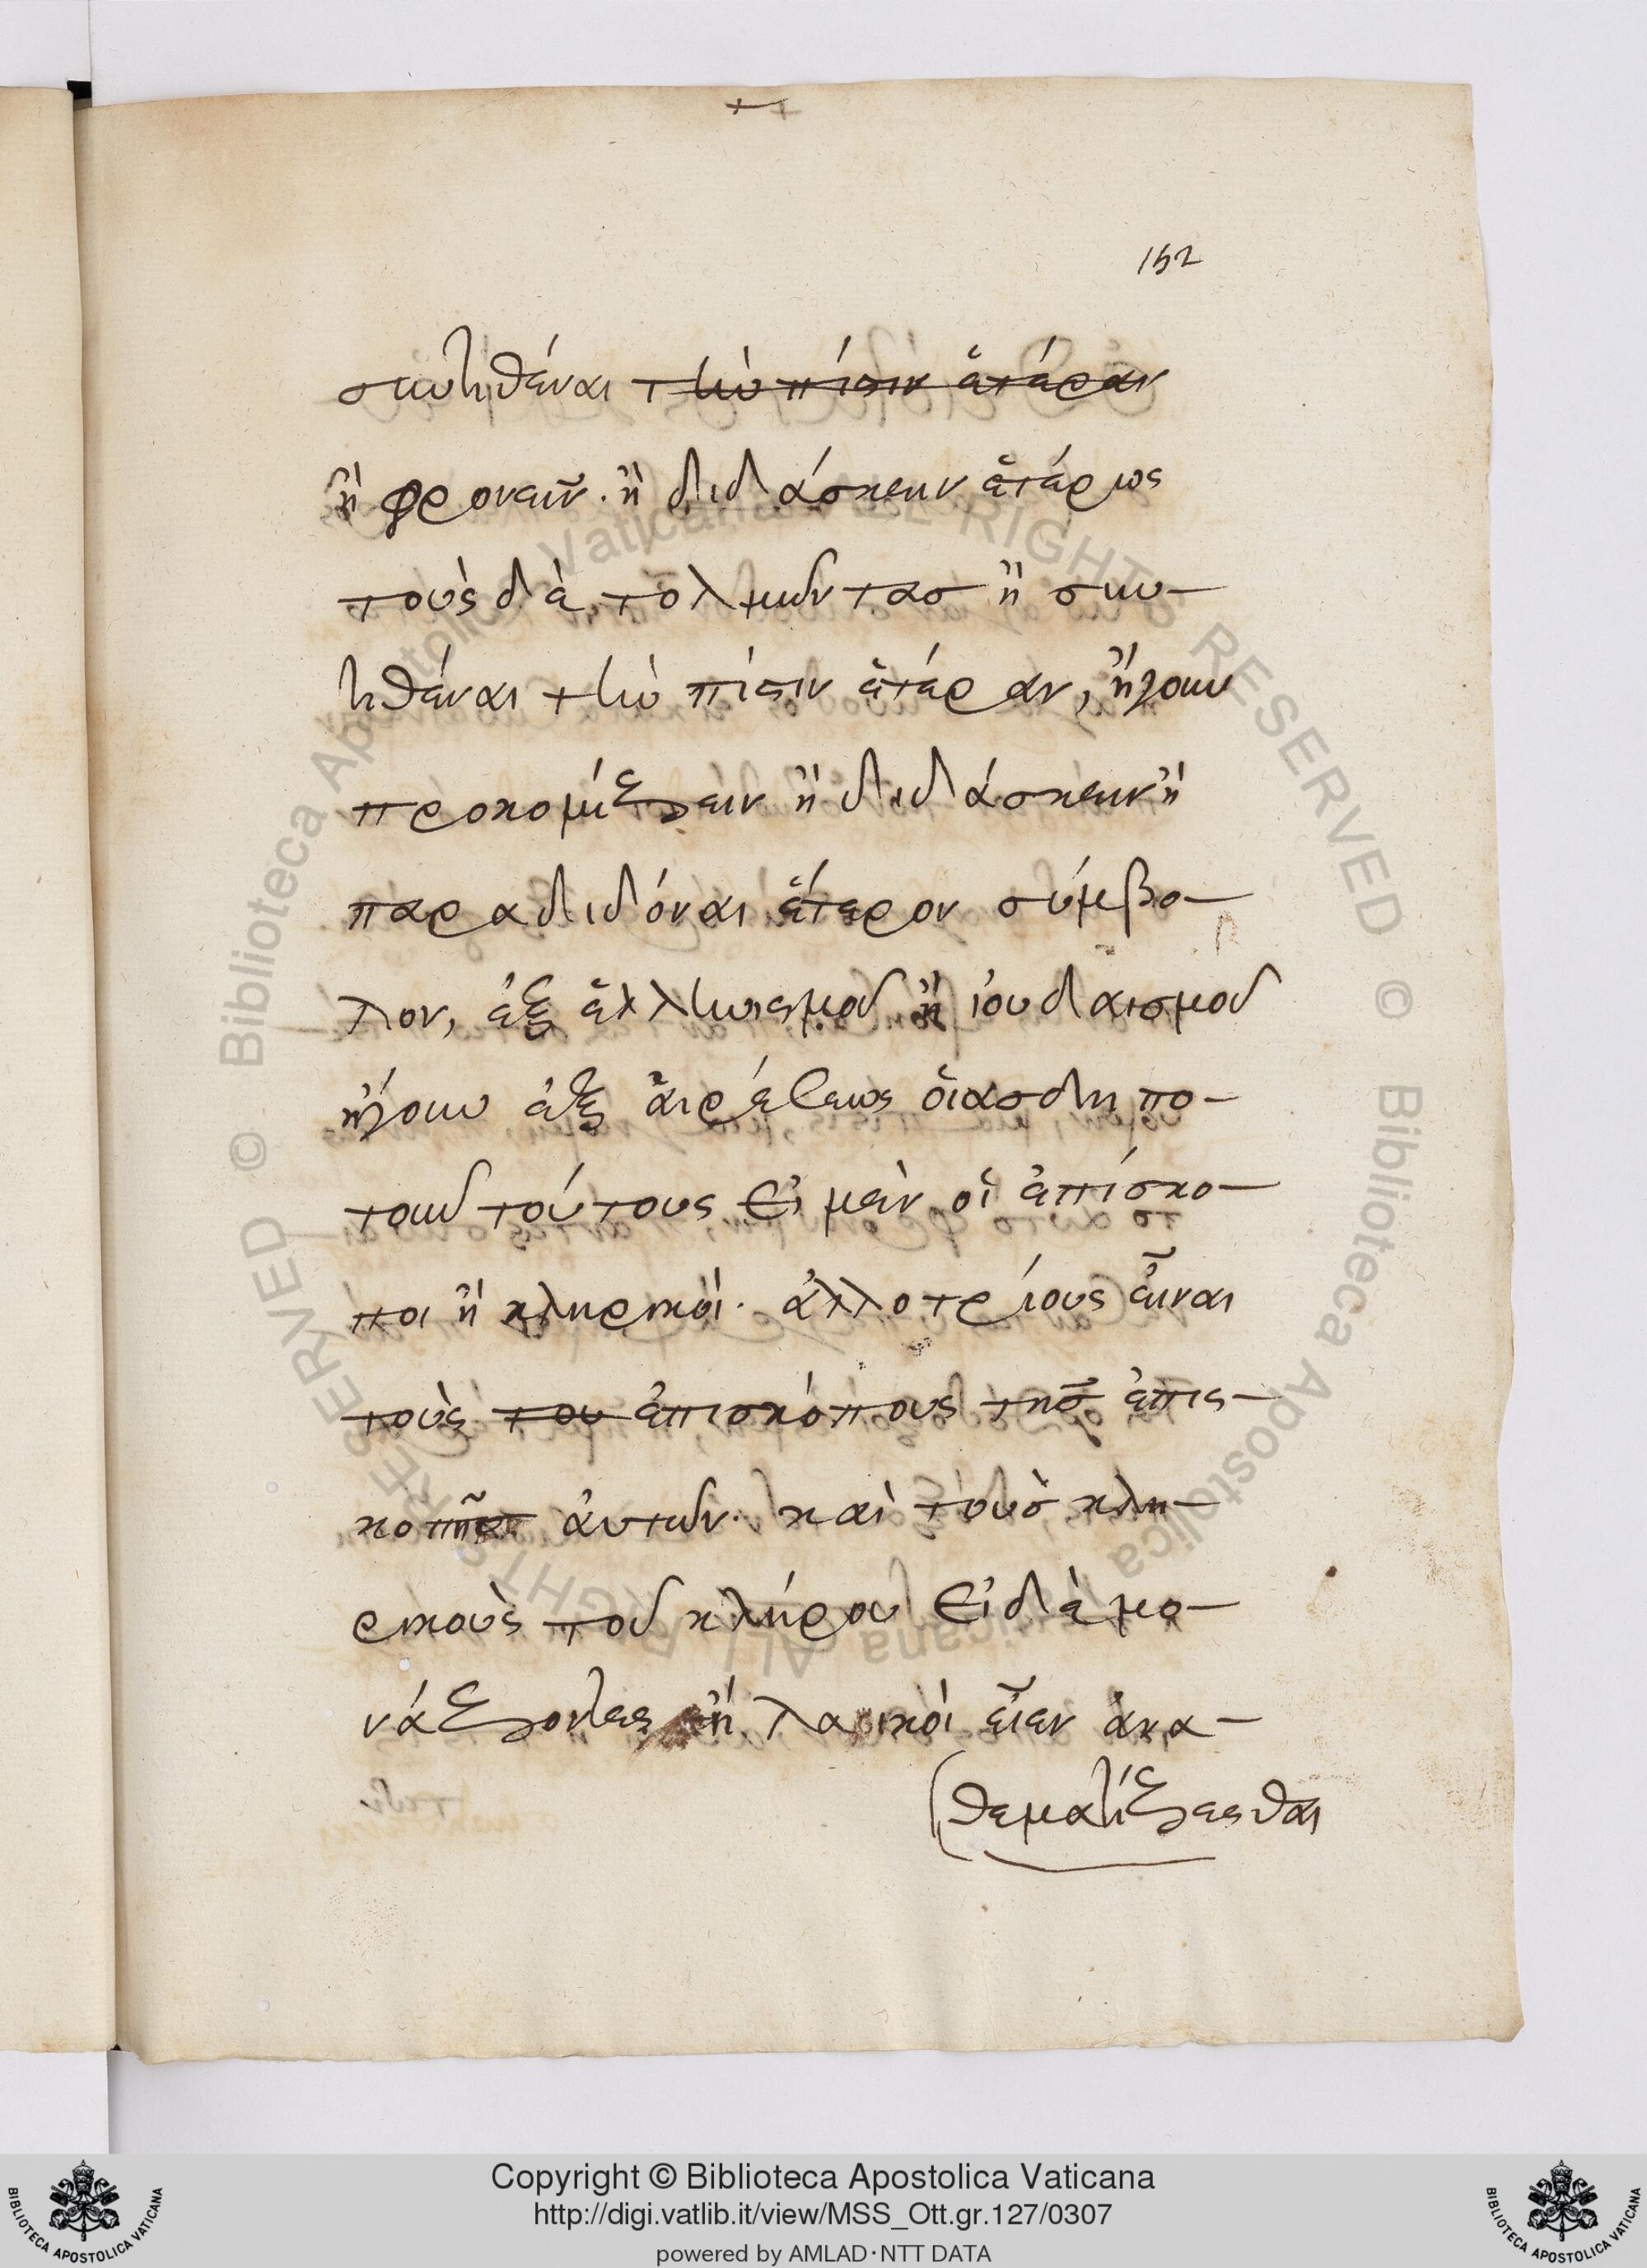 152
σκυτιθέναι τὴν πίστιν ἑτέραν
ἢ φρονεῖν. ἢ διδάσκειν ἑτέρως
τοὺς δὲ τολμῶντασ ἢ συν-
τιθέναι τὴν πίστιν ἑτέραν, ἤγουν
προκομίζειν ἢ διδάσκειν ἢ
παραδιδόναι ἕτερον σύμβο-
λον, ἐξ ἑλληνισμοῦ ἢ ἰουδαισμοῦ
ἤγουν ἐξ αἱρέσεως οἱασδηπο-
τουν τούτους Εἰ μὲν οἱ ἐπίσκο-
ποι ἢ κληρικοὶ. ἀλλοτρίους εἶναι
τοὺς του ἐπισκόπους τῆσ ἐπισ-
κοπῆσ ἀυτῶν. καὶ τοὺσ κλη-
ρικοὺς τοῦ κλήρου Εἰ δὲ μο-
νάζοντες ἢ λαικοὶ εἶεν ἀνα-
θεματίζεσθαι
Copyright © Biblioteca Apostolica Vaticana
http://digi.vatlib.it/view/MSS_Ott.gr.127/0307
powered by AMLAD·NTT DATA
BIBLIOTECA APOSTOLICA VATICANA
BIBLIOTECA APOSTOLICA VATICANA
© Biblioteca Apostolica Vaticana ALL RIGHTS RESERVED © Biblioteca Apostolica Vaticana ALL RIGHTS RESERVED